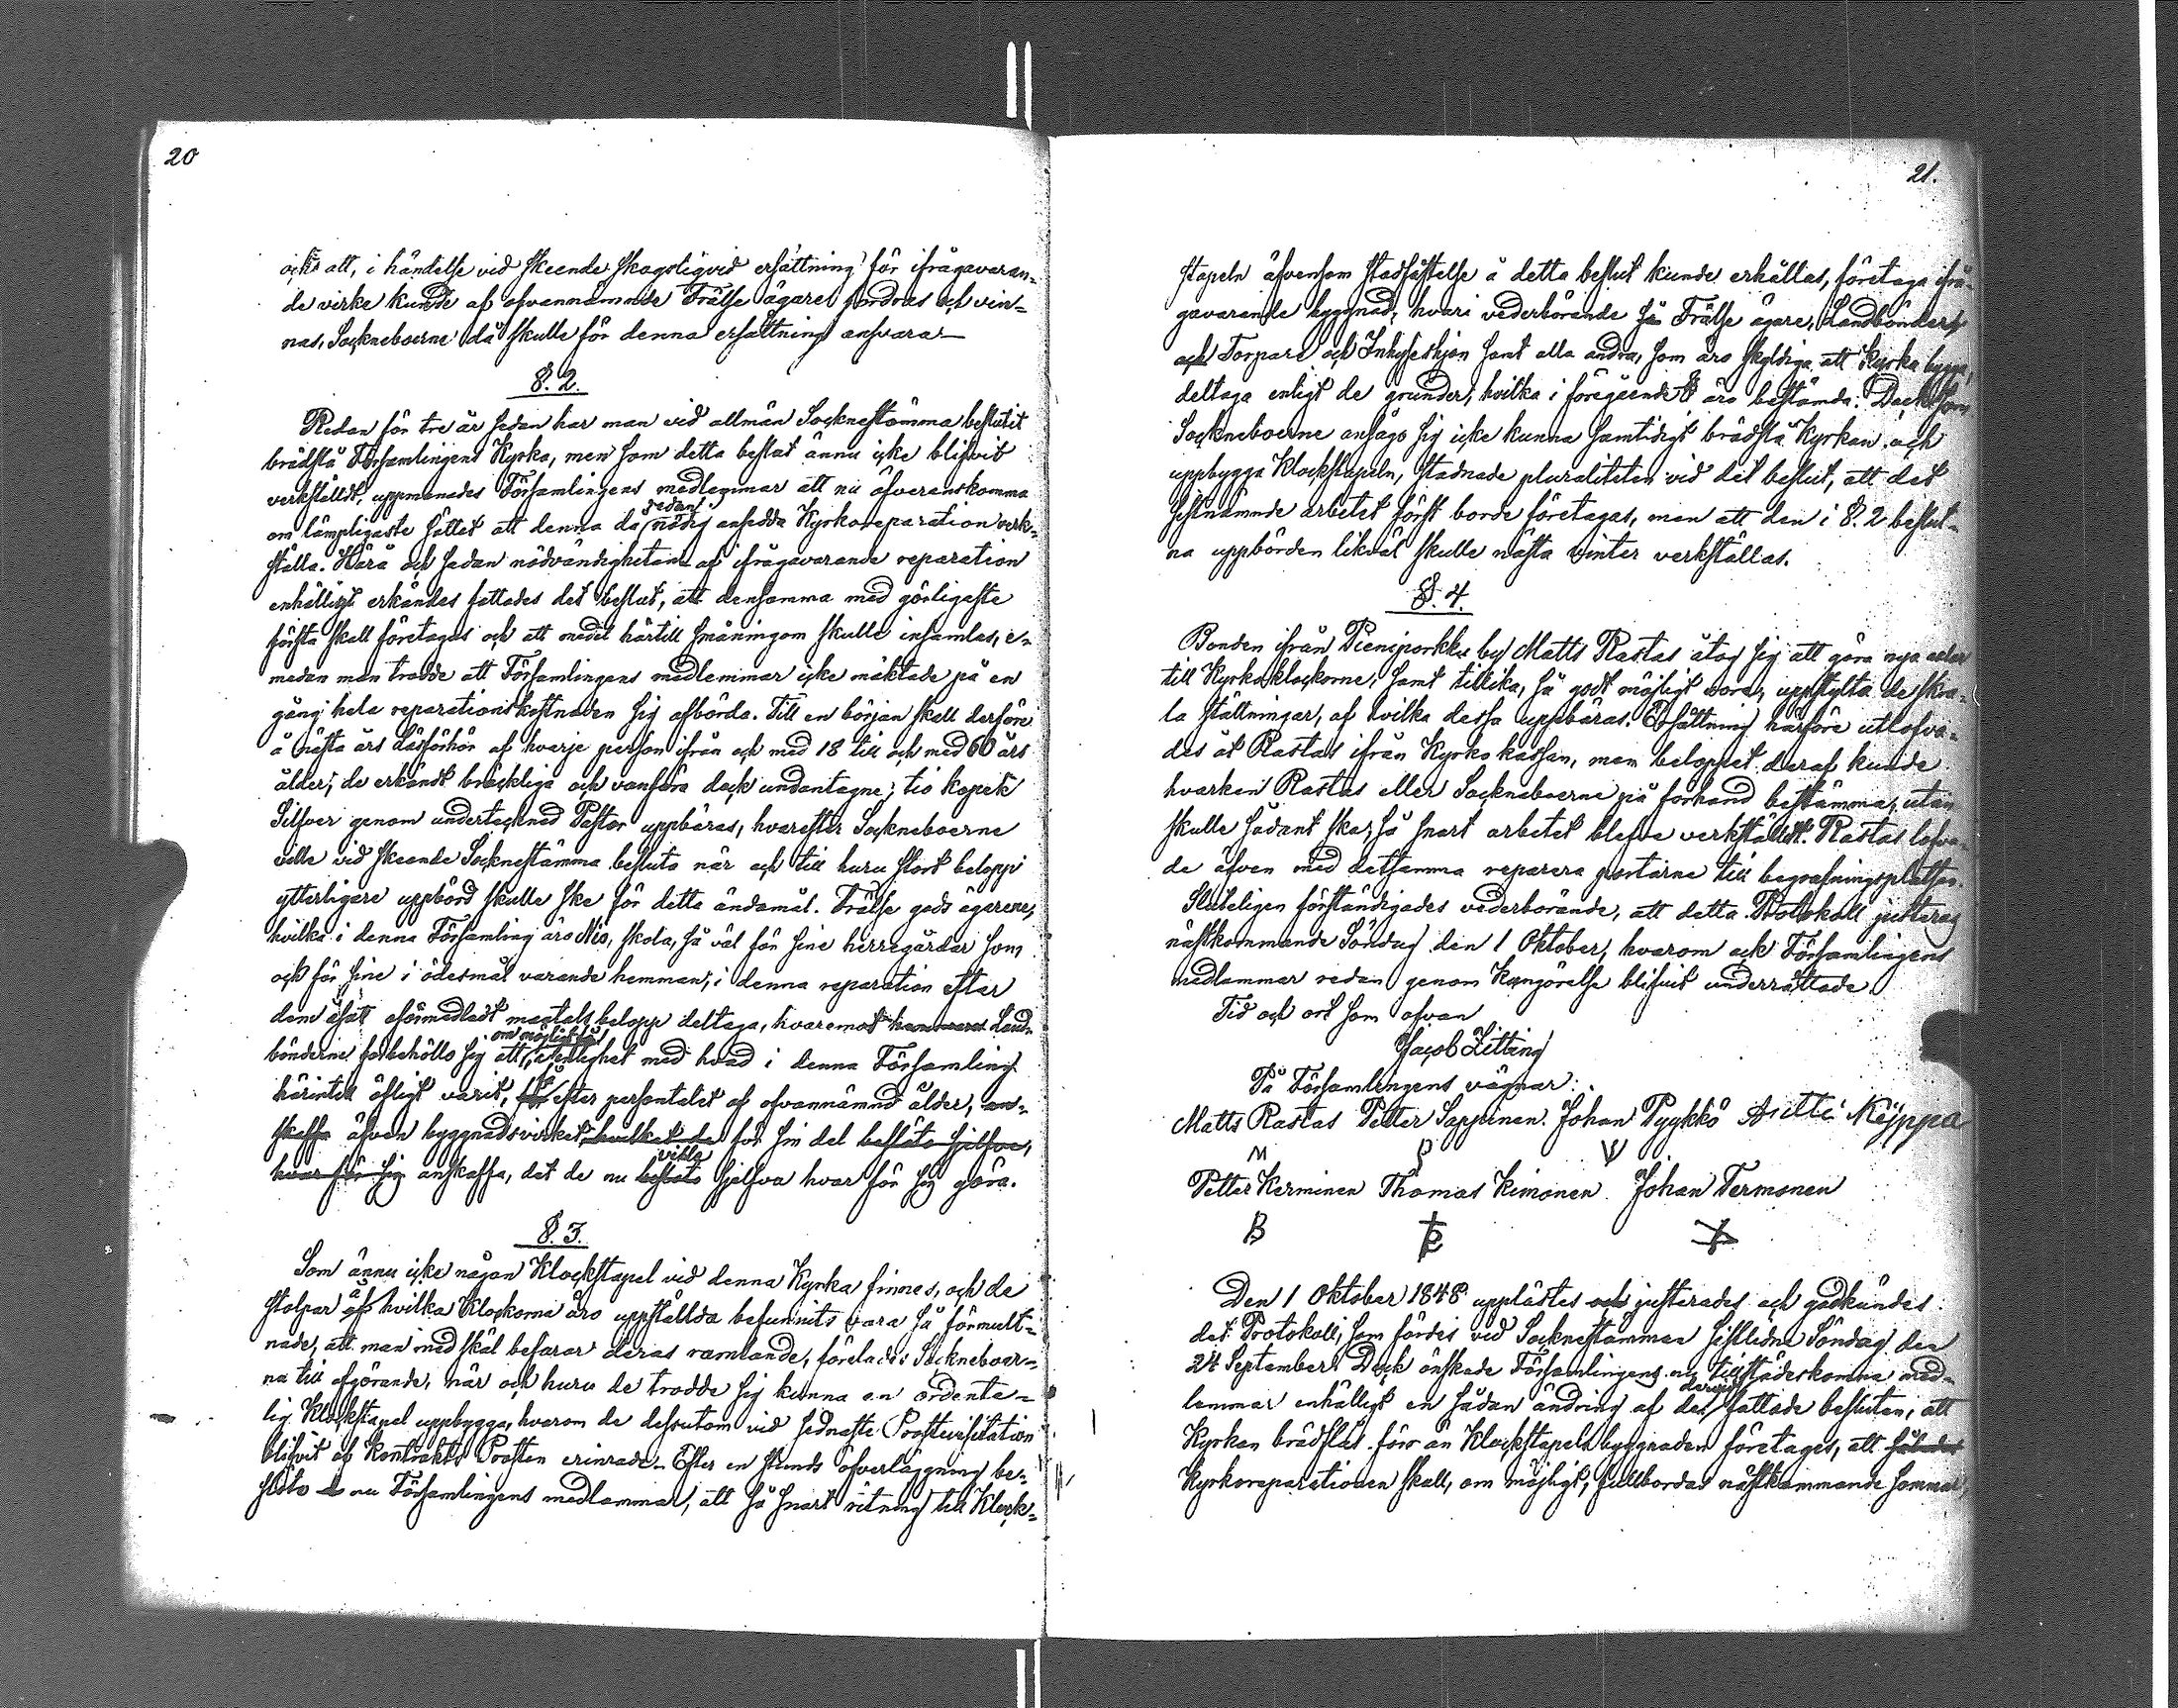 20
ock att, i händelse vid skeende skogsliqvid ersättning för ifrågavaran-
de virke kunde af ofvannämnde Frälse ägare fordras och vin-
nas, Sockneboerne då skulle för denna ersättning ansvara—
§. 2.
Redan för tre år sedan har man vid allmän Socknestämma beslutit
brädslå Församlingens Kyrka, men som detta beslut ännu icke blifvit
verkställdt, uppmanades Församlingens medlemmar att nu öfverenskomma
om lämpligaste sättet att denna då redan nödig ansedda Kyrkoreparation verk-
ställa. Härå och sedan nödvändigheten af ifrågavarande reparation
enhälligt erkändes fattades det beslut, att densamma med görligaste
första skall företagas och att medel härtill småningom skulle insamlas, e-
medan man trodde att Församlingens medlemmar icke mäktade på en
gång hela reparationskostnaden sig afbörda. Till en början skall derföre
å nästa års läsförhör af hvarje person ifrån och med 18 till och med 60 års
ålder, de erkändt bräckliga och vanföra dock undantagne, tio kopek
Silfver genom undertecknad Pastor uppbäras, hvarefter Sockneboerne
ville vid skeende Socknestämma besluta när och till huru stort belopp
ytterligare uppbörd skulle ske för detta ändamål. Frälse gods ägarene,
hvilka i denna Församling äro Nio, skola, så väl för sine herregårdar som
och för sine i ödesmål varande hemman, i denna reparation efter
dem åsatt oförmedladt mantals belopp deltaga, hvaremot Land-
bönderne förbehöllo sig att, om möjligt så i enlighet med hvad i denna Församling
härintill öfligt varit, efter persontalet af ofvannämnd ålder, an-
skaffa äfven byggnadsvirket hvilket de för sin del besluto sjelfve,
hvar för sig anskaffa, det de nu besluto ville sjelfva hvar för sig göra.
§. 3.
Som ännu icke någon Klockstapel vid denna Kyrka finnes, och de
stolpar å hvilka Klockorna äro uppställda befunnits vara så förmult-
nade, att man med skäl befarar deras ramlande, förelades Sockneboer-
na till afgörande, när och huru de trodde sig kunna en ordente-
lig Klockstapel uppbygga, hvarom de dessutom vid sednaste Prostvisitation
blifvit af Kontrakts Prosten erinrade. Efter en stunds öfverläggning be-
slöto nu Församlingens medlemmar, att så snart ritning till Klock-
21.
stapeln äfvensom stadfästelse å detta beslut kunde erhållas, företaga ifrå-
gavarande byggnad, hvari vederbörande så Frälse ägare, Landbönder
och Torpare och Inhyseshjon samt alla andra, som äro skyldiga att Kyrka bygga,
deltaga enligt de grunder, hvilka i föregående § äro bestämda. Dock som
Sockneboerne ansågo sig icke kunna samtidigt brädslå Kyrkan och
uppbygga Klockstapeln, stadnade pluraliteten vid det beslut, att det
sistnämnde arbetet först borde företagas, men att den i §. 2 beslut-
na uppbörden likväl skulle nästa vinter verkställas.
§. 4.
Bonden ifrån Pieniporkku by Matts Rastas åtog sig att göra nya axlar
till Kyrkoklockorne, samt tillika, så godt möjligt vore, uppstylta de skra-
la ställningar, af hvilka dessa uppbäras. Ersättning härföre utlofva-
des åt Rastas ifrån Kyrko kassan, men beloppet deraf kunde
hvarken Rastas eller Sockneboerne på förhand bestämma, utan
skulle sådant ske, så snart arbetet blefve verkställdt. Rastas lofva-
de äfven med detsamma reparera portarne till begrafningsplatsen.
Sluteligen förständigades vederbörande, att detta Protokoll justeras
nästkommande Söndag den 1 Oktober, hvarom ock Församlingens
medlemmar redan genom Kungörelse blifvit underrättade.
Tid och ort som ofvan
Jacob Zitting
På Församlingens vägnar:
Matts Rastas Petter Sappinen. Johan Pyykkö Antti Käyppa
M P V
Petter Kerminen Thomas Kimonen Johan Termonen
B
Den 1 Oktober 1848 upplästes och justerades och godkändes
det Protokoll, som fördes vid Socknestämman sistlidne Söndag den
24 September. Dock önskade Församlingens nu tillstädeskomna med-
lemmar enhälligt en sådan ändring af den dervid fattade besluten, att
Kyrkan brädslås förr än Klockstapels byggnaden företages, att
Kyrkoreparationen skall, om möjligt, fullbordas nästkommande sommar,